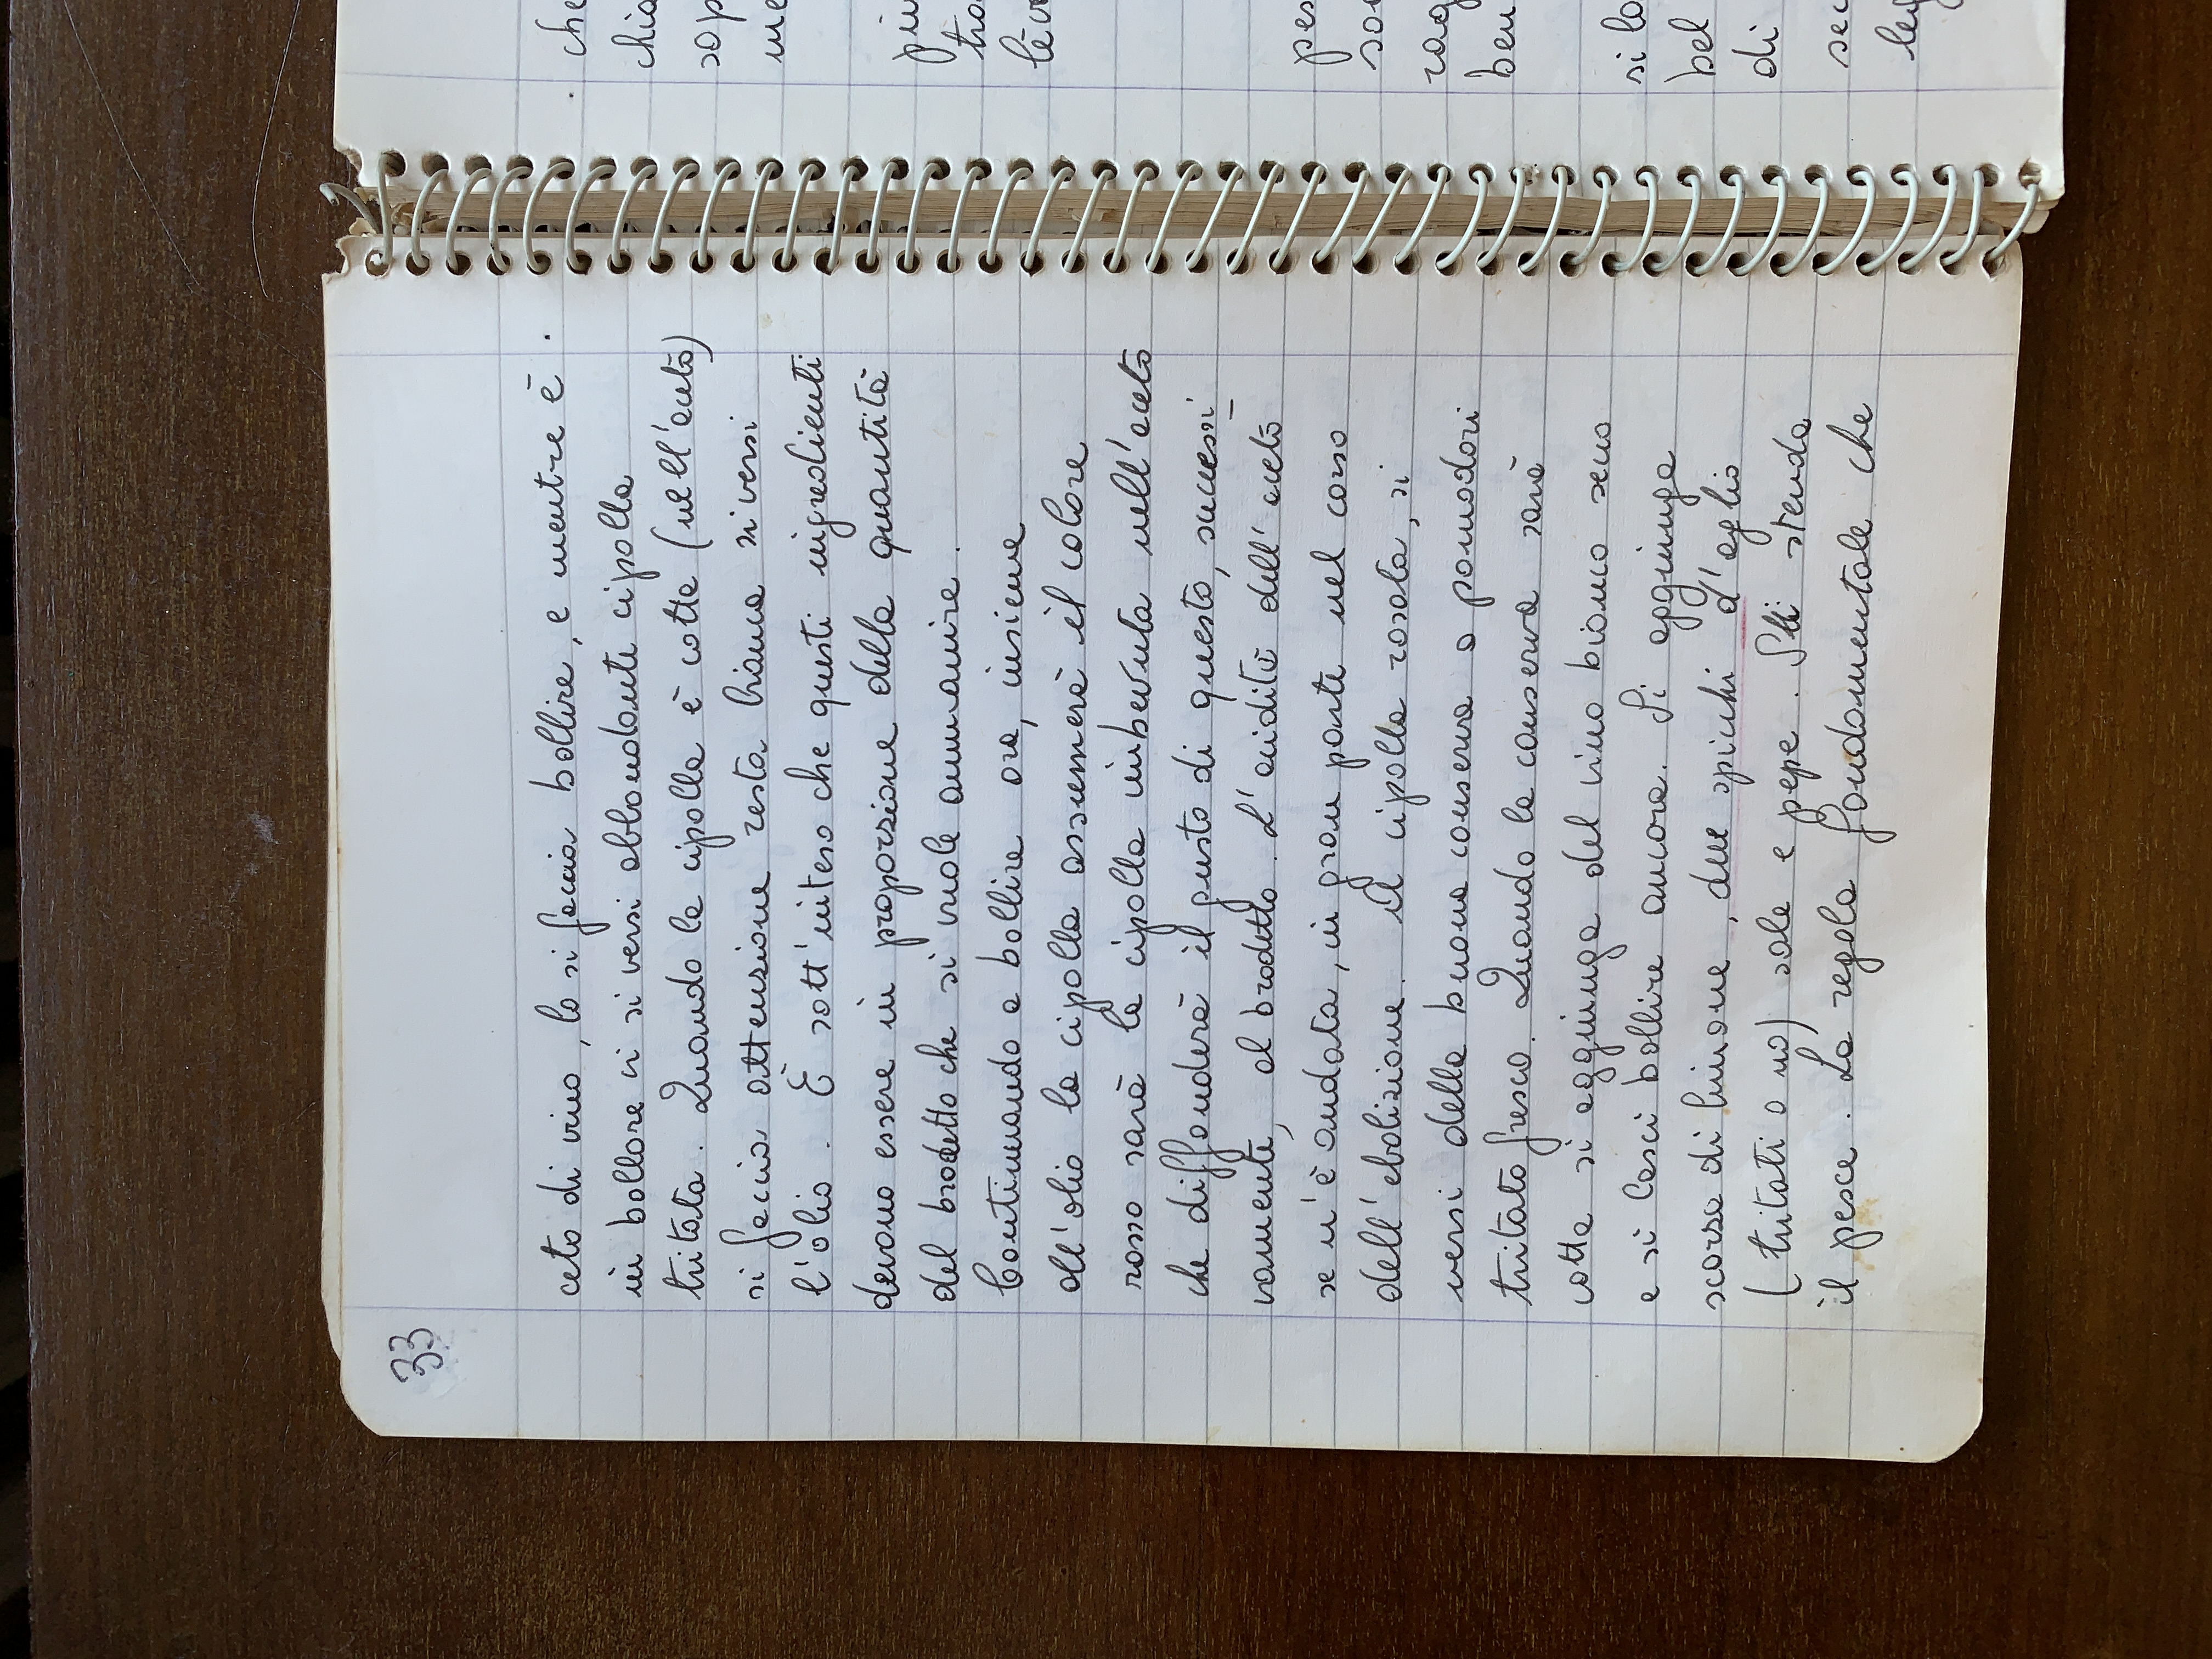 33
ceto di vino, lo si faccia bollire, e mentre è
in bollore vi si versi abbondante cipolla
tritata. Quando la cipolla è cotta (nell'aceto)
si faccia attenzione resta bianca si versi
l'olio. È sott'inteso che questi ingredienti
devono essere in proporzione della quantità
del brodetto che si vuole ammanire.
Continuando a bollire ora, insieme
all'olio la cipolla assumerà il colore
rosso sarà la cipolla imbevuta nell'aceto
che diffonderà il gusto di questo, successi
vamente, al brodetto. L'acidità dell'aceto
se n'è andata, in gran parte nel corso
dell'ebolizione. A cipolla rosata, si
versi della buona conserva o pomodori
tritato fresco. Quando la conserva sarà
cotta si aggiunga del vino bianco secco
e si lasci bollire ancora. Si aggiunga
scorza di limone, due spicchi d'aglio
(tritati o no) sale e pepe. stenda
il pesce. La regola fondamentale che
che
bel
di